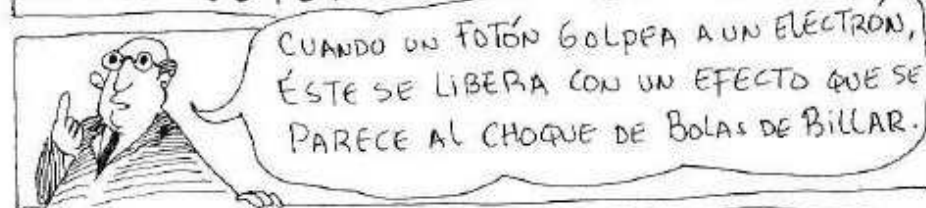 CUANDO UN FOTÓN GOLPEA A UN ELECTRÓN,
ÉSTE SE LIBERA CON UN EFECTO QUE SE
PARECE AL CHOQUE DE BOLAS DE BILLAR.